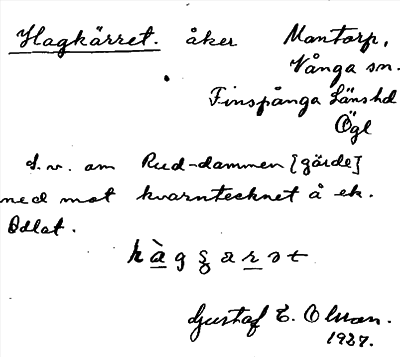 Hagkärret. åker Mantorp,
Vånga sn.
Finspånga Länshd
Ögl
S. v. om Rud-dammen [gärde]
ned mot kvarntecknet å ek.
Odlat.
Gustaf E. Olsson.
1927.